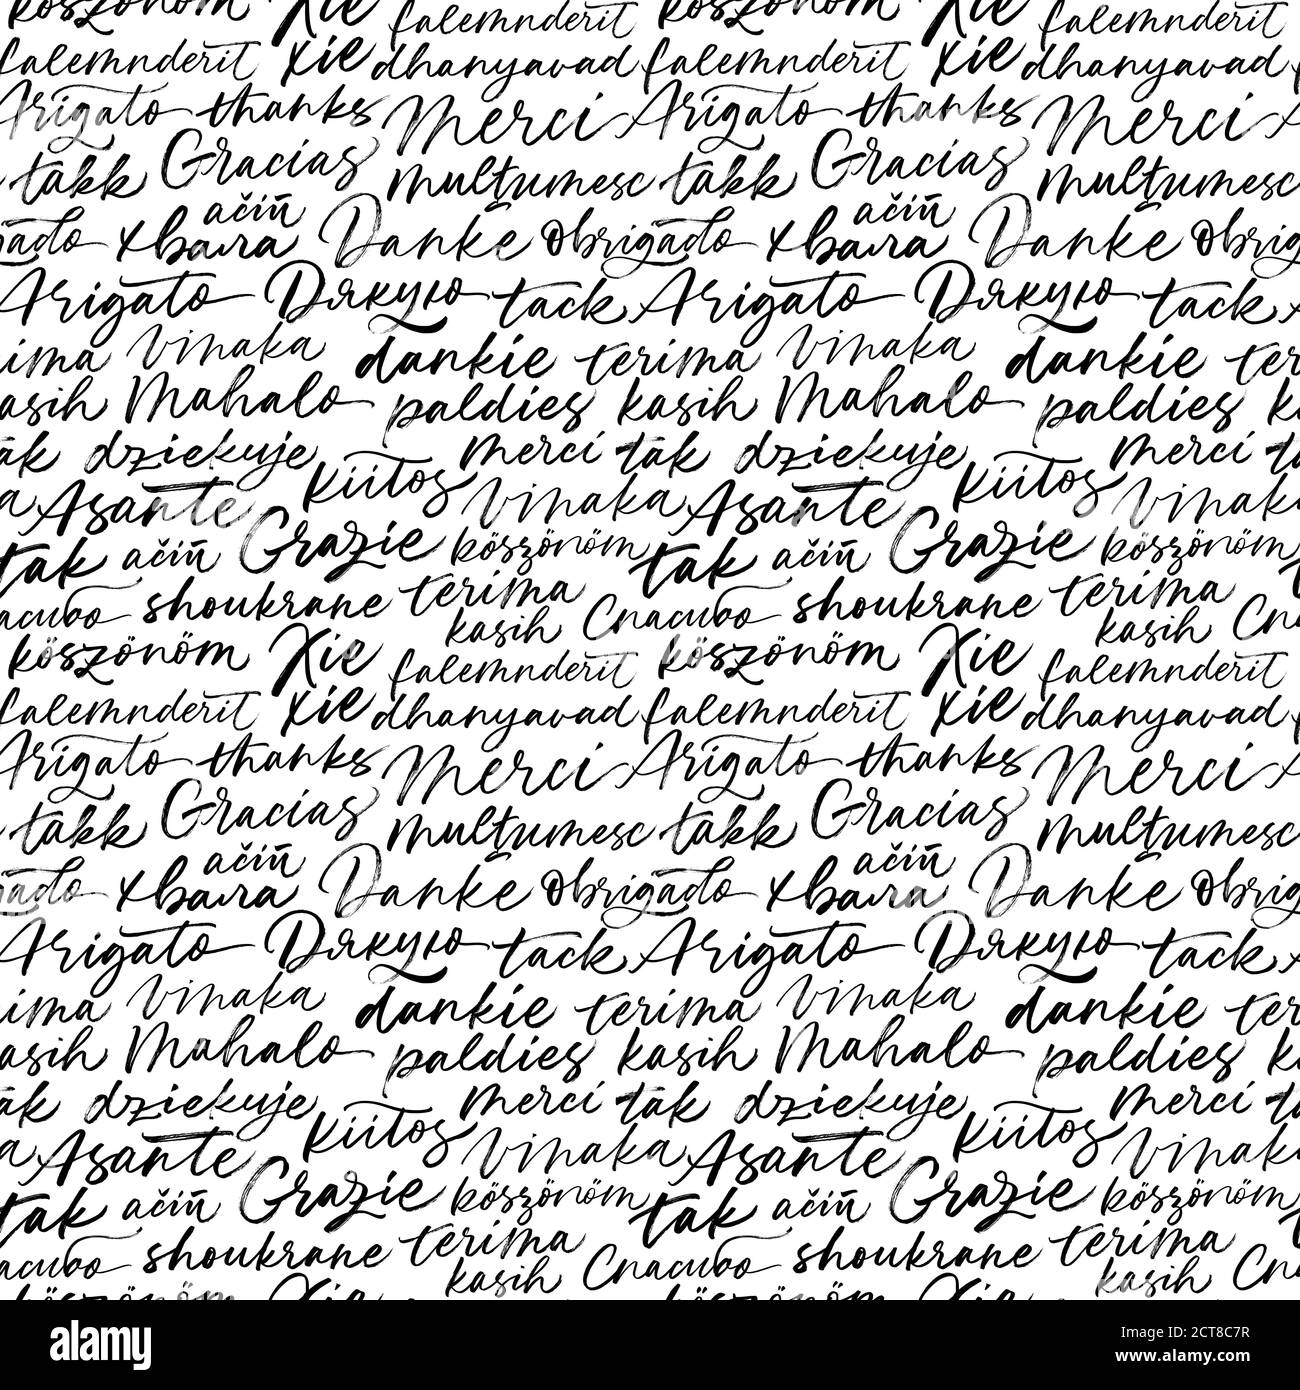 köszönöm Xie falemnderit köszönöm Xie falemnderit
falemnderit xie dhanyavad falemnderit xie dhanyavad
Arigato thanks Merci Arigato thanks Merci
takk Gracias mulțumesc takk Gracias mulțumesc
ačiū ačiū
хвала Danke obrigado хвала Danke
Arigato Дякую tack Arigato Дякую tack
vinaka dankie terima vinaka dankie
kasih Mahalo paldies kasih Mahalo paldies
tak dziekuje merci tak dziekuje merci
Asante kiitos vinaka Asante kiitos
tak ačiū Grazie köszönöm tak ačiū Grazie köszönöm
shoukrane terima kasih Спасибо shoukrane terima kasih
köszönöm Xie falemnderit köszönöm Xie falemnderit
falemnderit xie dhanyavad falemnderit xie dhanyavad
Arigato thanks Merci Arigato thanks Merci
takk Gracias mulțumesc takk Gracias mulțumesc
ačiū ačiū
хвала Danke obrigado хвала Danke
Arigato Дякую tack Arigato Дякую tack
vinaka dankie terima vinaka dankie
kasih Mahalo paldies kasih Mahalo paldies
tak dziekuje merci tak dziekuje merci
Asante kiitos vinaka Asante kiitos
tak ačiū Grazie köszönöm tak ačiū Grazie köszönöm
shoukrane terima kasih Спасибо shoukrane terima kasih
alamy
Image ID: 2CT8C7R
www.alamy.com